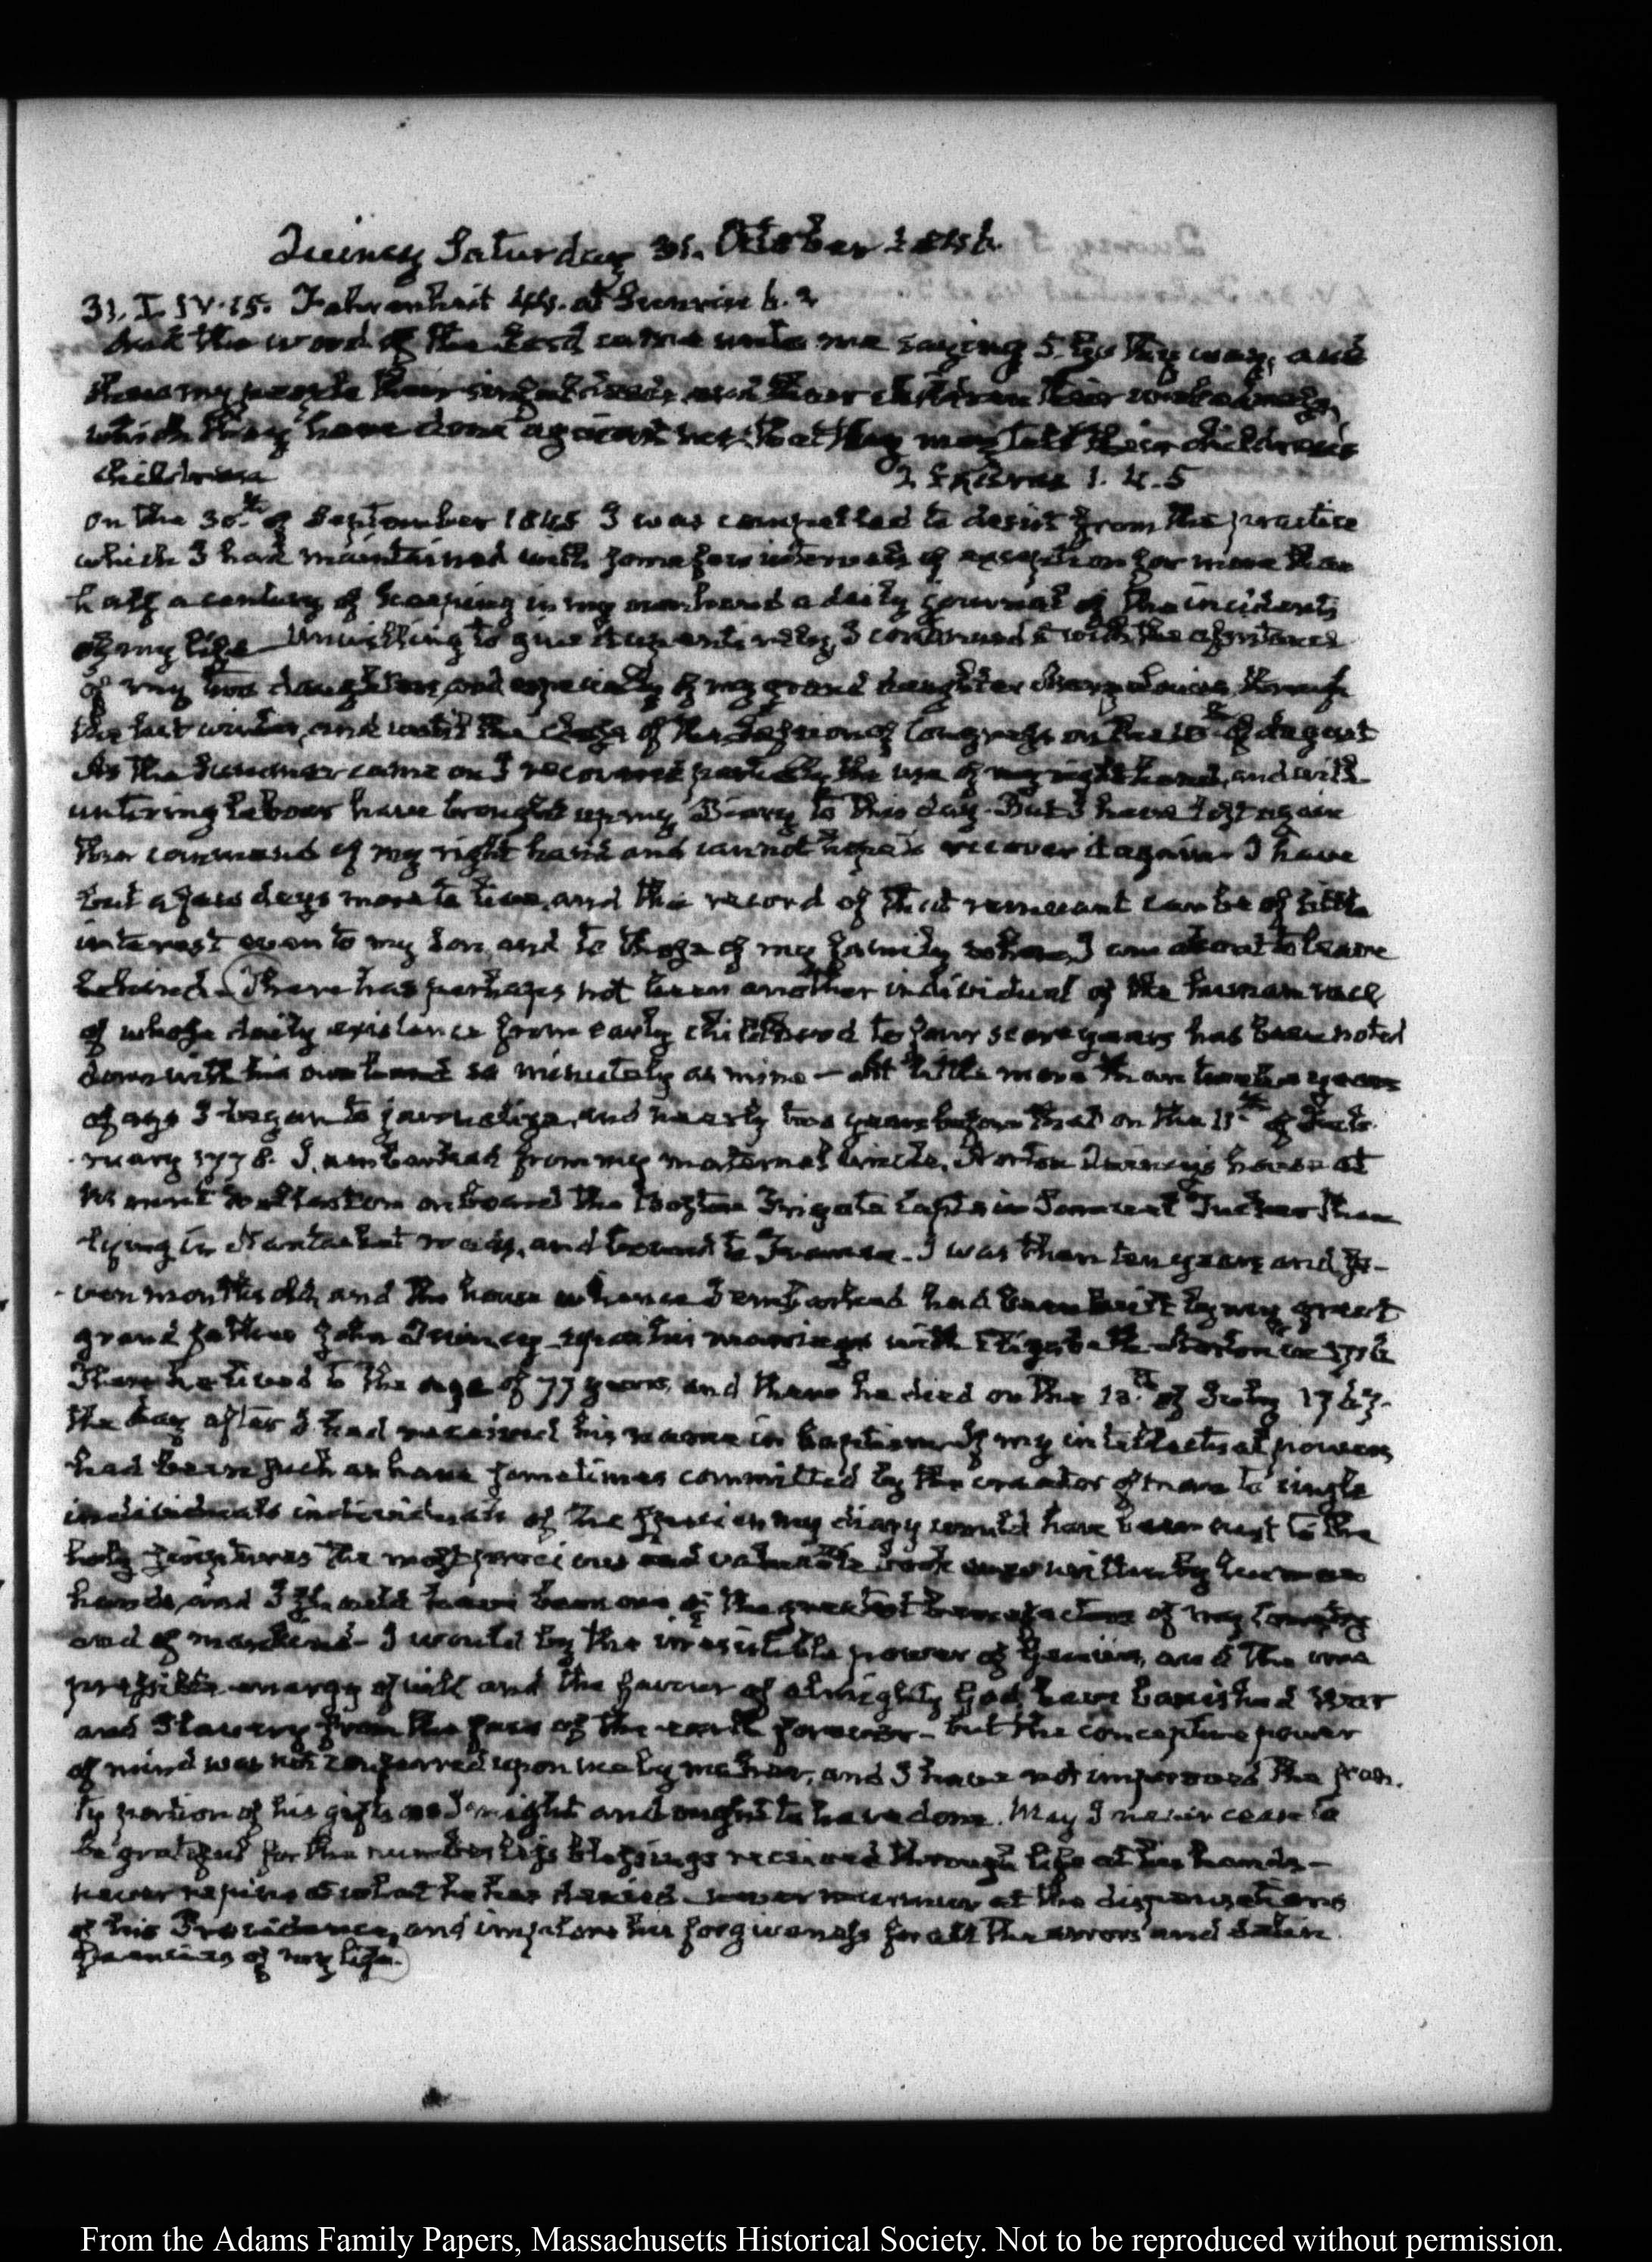 Quincy Saturday 31. October 1846.
31. I. IV.15. Fahrenheit 44. at Sunrise 6.2
And the word of the Lord came unto me saying 5. Go thy way, and
shew my people their sinful deeds, and their children their wickedness,
which they have done against me; that they may tell their children's
children 2 Esdras 1. 4. 5
On the 30th. of September 1845 I was compelled to desist from the practice
which I had maintained with some few intervals of exception for more than
half a century of keeping in my own hand a daily journal of the incidents
of my life Unwilling to give it up entirely, I continued it with the assistance
of my two daughters, and especially of my grand daughter Mary Louisa, through
the last winter, and until the close of the Session of Congress on the 10th. of August
As the Summer came on I recovered partially the use of my right hand, and with
untiring labour have brought up my Diary to this day. But I have lost again
the command of my right hand and cannot hope to recover it again I have
but a few days more to live, and the record of that remnant can be of little
interest even to my Son, and to those of my family whom I am about to leave
behind. There has perhaps not been another individual of the human race,
of whose daily existence from early childhood to four score years has been noted
down with his own hand so minutely as mine — At little more than twelve years
of age I began to journalize, and nearly two years before that on the 11th. of Feb-
ruary 1778. I embarked from my maternal Uncle, Norton Quincy's house at
Mount Wollaston on board the Boston Frigate Captain Samuel Tucker then
lying in Nantasket roads, and bound to France. I was then ten years and se-
ven months old, and the house whence I embarked had been built by my great
grandfather John Quincy upon his marriage with Elizabeth Norton in 1716
There he lived to the age of 77 years, and there he died on the 13th. of July 1767.
the day after I had received his name in baptism. If my intellectual powers
had been such as have sometimes committed by the creator of man to single
individuals individuals of the species my diary would have been next to the
holy scriptures the most precious and valuable book ever written by human
hands, and I should have been one of the greatest benefactors of my Country
and of mankind - I would by the irresistible power of Genius, and the irre
pressible energy of will and the favour of almighty God, have banished War
and Slavery from the face of the earth forever - but the conceptive power
of mind was not conferred upon me by my maker, and I have not improved the scan.
ty portion of his gifts as I might and ought to have done. May I never cease to
be grateful for the numberless blessings received through life at his hands -
never repine at what he has denied never murmur at the dispensations
of his Providence, and implore his forgiveness for all the errors and delin
quencies of my life.
From the Adams Family Papers, Massachusetts Historical Society. Not to be reproduced without permission.